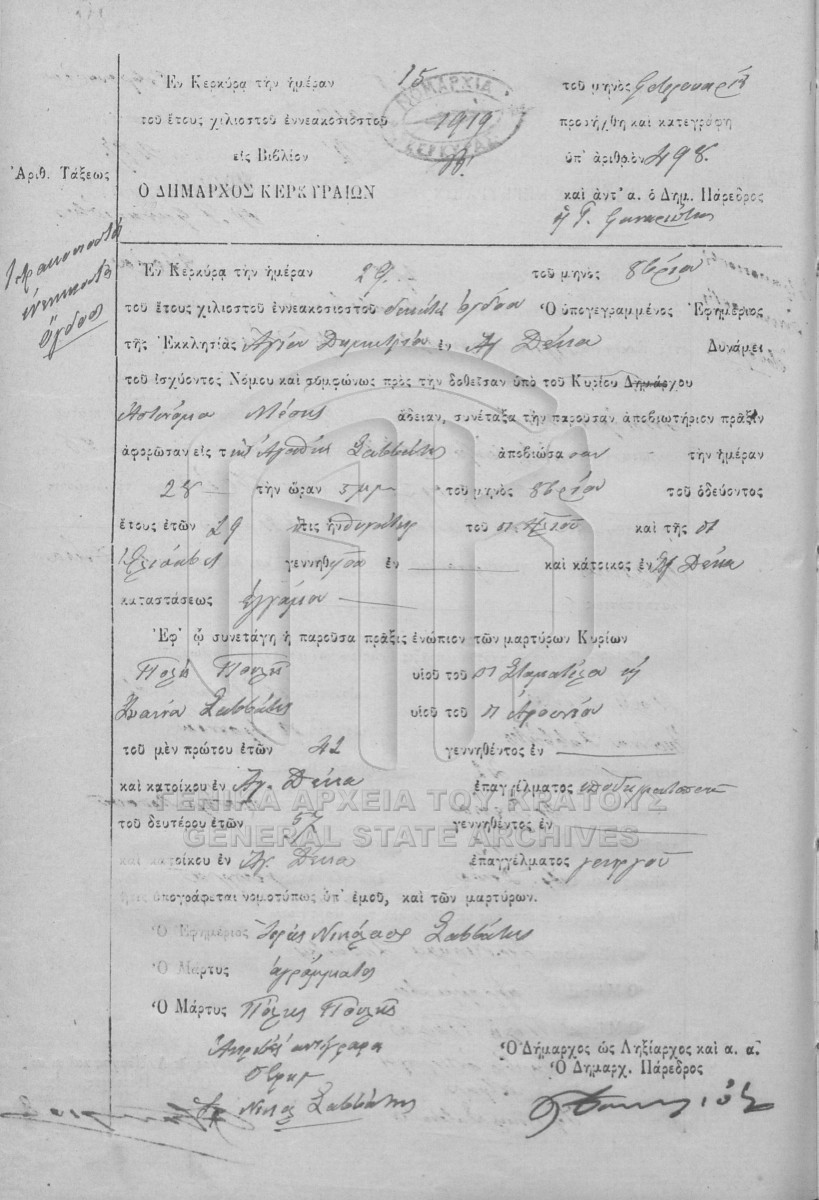 Ἐν Κερκύρᾳ τὴν ἡμέραν 15 τοῦ μηνὸς
τοῦ ἔτους χιλιοστοῦ ἐννεακοσιοστοῦ 1919 προσήχθη καὶ κατεγράφη
εἰς Βιβλίον ὑπ' ἀριθμὸν 498.
Ἀριθ. Τάξεως
Ὁ ΔΗΜΑΡΧΟΣ ΚΕΡΚΥΡΑΙΩΝ καὶ ἀντ' α. ὁ Δημ. Πάρεδρος
ΝΟΜΑΡΧΙΑ ΚΕΡΚΥΡΑΣ
Τετρακοσιοστὴ
ἐννενηκοστὴ
ὄγδοη
Ἐν Κερκύρᾳ τὴν ἡμέραν 29 τοῦ μηνὸς 8βρίου
τοῦ ἔτους χιλιοστοῦ ἐννεακοσιοστοῦ δεκάτου ὀγδόου Ὁ ὑπογεγραμμένος Ἐφημέριος
τῆς Ἐκκλησίας Ἁγίου Δημητρίου ἐν Ἁγ. Δέκα Δυνάμει
τοῦ ἰσχύοντος Νόμου καὶ συμφώνως πρὸς τὴν δοθεῖσαν ὑπὸ τοῦ Κυρίου Δημάρχου
Ἀστυνόμου Μέσης ἄδειαν, συνέταξα τὴν παροῦσαν ἀποβιωτήριον πρᾶξιν
ἀφορῶσαν εἰς τὴν Ἀγαθὴν Σαββάνη ἀποβιώσασαν τὴν ἡμέραν
28 τὴν ὥραν 5 μμ τοῦ μηνὸς 8βρίου τοῦ ὁδεύοντος
ἔτους ἐτῶν 29 ἥτις ἦν θυγάτηρ τοῦ καὶ τῆς
γεννηθεῖσα ἐν καὶ κάτοικος ἐν Ἁγ. Δέκα
καταστάσεως ἐγγάμου
Ἐφ' ᾧ συνετάγη ἡ παροῦσα πρᾶξις ἐνώπιον τῶν μαρτύρων Κυρίων
Πολύ Πουλῆ υἱοῦ τοῦ π Σταματέλου καὶ
Σαββάνη υἱοῦ τοῦ π
τοῦ μὲν πρώτου ἐτῶν 42 γεννηθέντος ἐν
καὶ κατοίκου ἐν Ἁγ. Δέκα ἐπαγγέλματος ὑποδηματοποιοῦ
ΓΕΝΙΚΑ ΑΡΧΕΙΑ ΤΟΥ ΚΡΑΤΟΥΣ
τοῦ δευτέρου ἐτῶν 57 γεννηθέντος ἐν
GENERAL STATE ARCHIVES
καὶ κατοίκου ἐν Ἁγ. Δέκα ἐπαγγέλματος γεωργοῦ
ἥτις ὑπογράφεται νομοτύπως ὑπ' ἐμοῦ, καὶ τῶν μαρτύρων.
Ὁ Ἐφημέριος Ἱερεὺς Νικόλαος Σαββάνης
Ὁ Μάρτυς ἀγράμματος
Ὁ Μάρτυς Πόλης Πουλῆς
Ἀκριβὲς ἀντίγραφον
Ὁ Δήμαρχος ὡς Ληξίαρχος καὶ α. α.
Ὁ Δημαρχ. Πάρεδρος
Ὁ Ἐφημ
Νικολ Σαββάνης